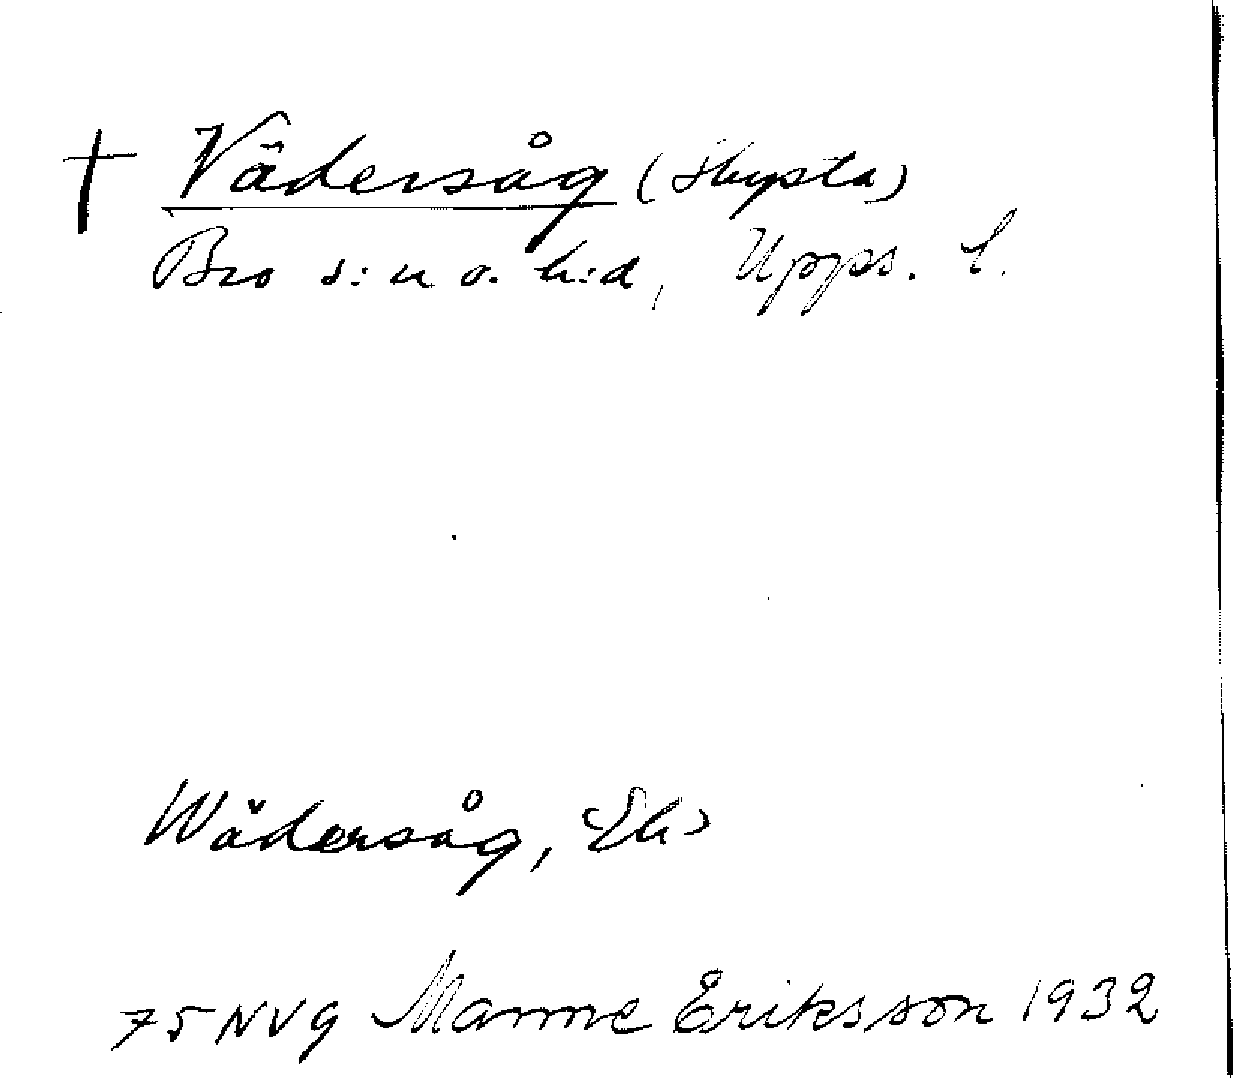 † Vädersåg (Åbysta)
Bro s:n o. h:d, Upps. l.
Wädersåg, Ek
75 NVg Manne Eriksson 1932